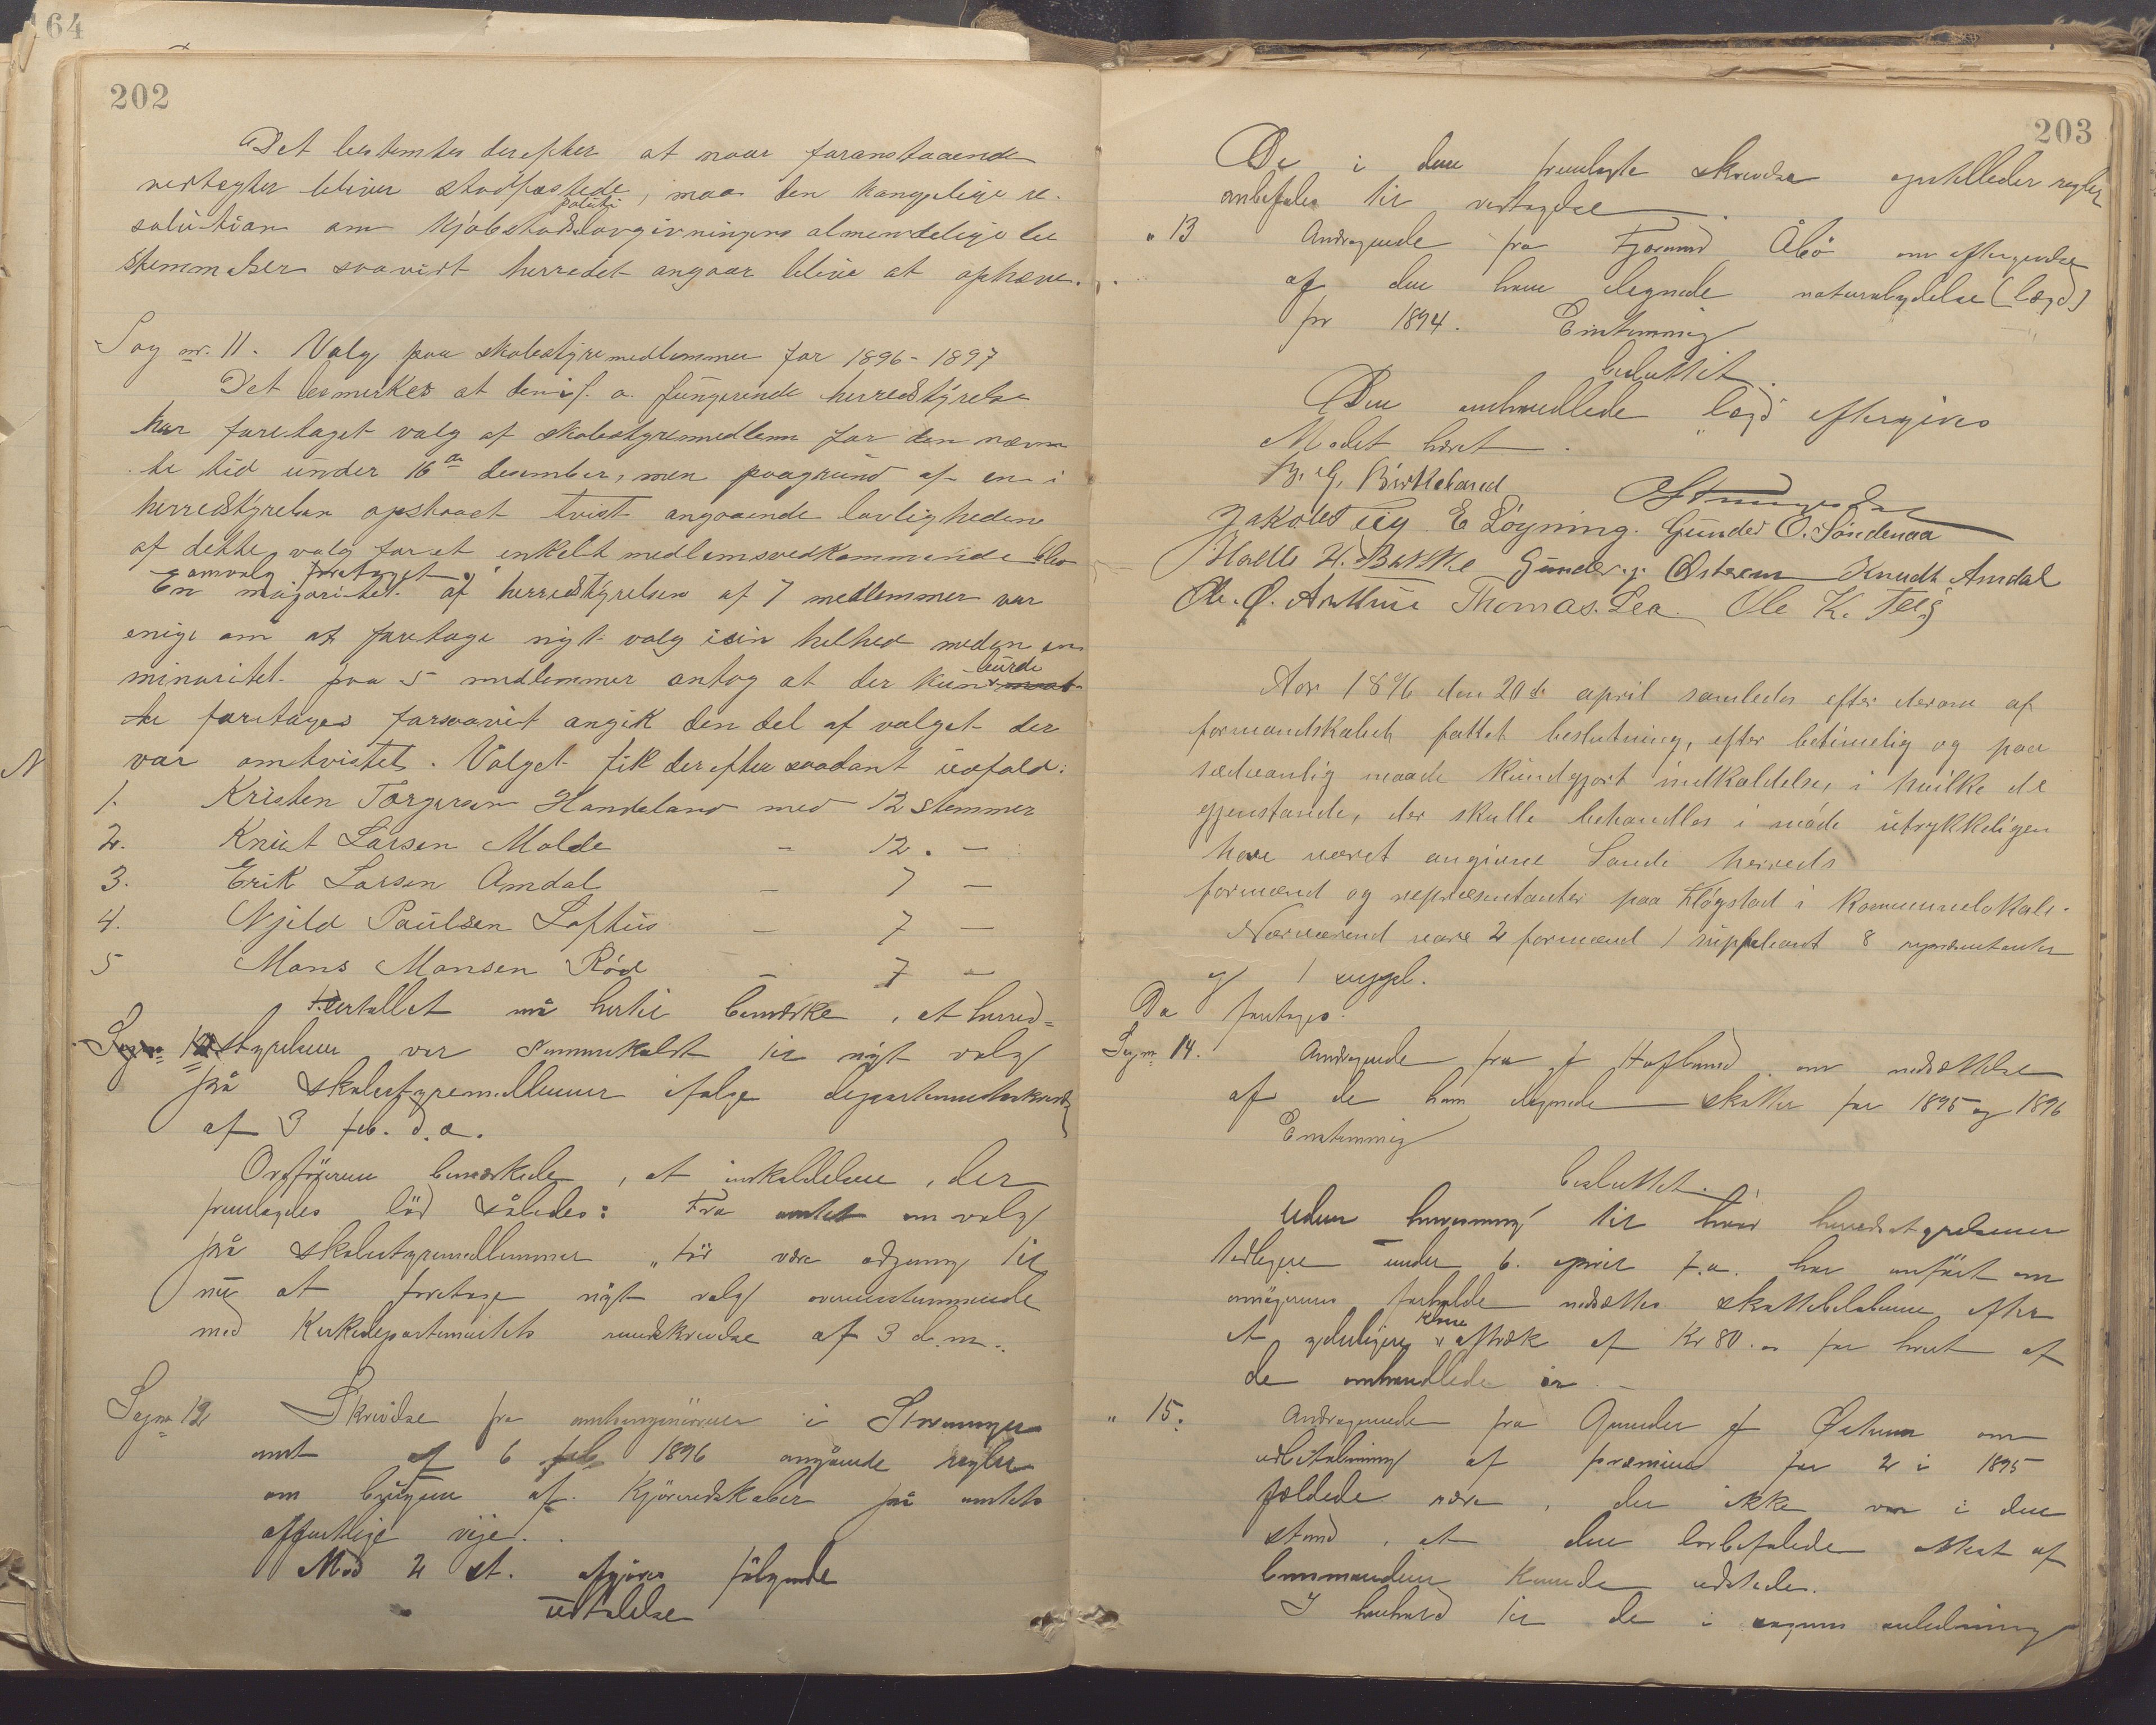 64
202
Det bestemtes derefter at naar foranstaaende
vedtægter bliver stadfæstede, maa den kongelige re-
politi
solution om Kjøbstadslovgivningens almindelige be
stemmelser saavidt herredet angaar blive at ophæve.
Sag nr. 11. Valg paa skolestyremedlemmer for 1896-1897
Det bemerkes at den i f. a. fungerende herredstyrelse
har foretaget valg af skolestyremedlem for den nævn
te tid under 16de desember, men paagrund af en i
herredstyrelsen opstaaet tvist angaaende lovligheden
af dette valg for et enkelt medlemsvedkommende blev
omvalg foretaget.
En majoritet af herredstyrelsen af 7 medlemmer var
enige om at foretage nyt valg i sin helhed medens en
burde
minoritet paa 5 medlemmer antog at der kun maat
te foretages forsaavit angik den del af valget der
var omtvistet. Valget fik derefter saadant udfald:
N
1. Kristen Torgersen Handeland med 12 stemmer
2. Knut Larsen Molde - 12. -
3. Erik Larsen Amdal - 7 -
4. Njeld Paulsen Lofthus - 7 -
5 Mons Monsen Rød - 7 -
Flertallet må hertil bemærke, at herred-
Sag nr 12 styrelsen var sammenkaldt til nyt valg
på skolestyremedlemmer ifølge departementsskriv
af 3 feb. d.a.
Ordføreren bemærkede, at indkaldelsen, der
fremlagdes lød således: Fra amtet om valg
på skolestyremedlemmer "tør være adgang til
nu at foretage nyt valg overensstemmende
med Kirkedepartementets rundskrivelse af 3 d.m.
Sag nr 12 Skrivelse fra amtsingeniøren i Stavanger
amt af 6 feb 1896 angående regler
om brugen af Kjøreredskaber på amtets
offentlige veje.
Mod 2 st. afgives følgende
udtalelse
203
De i den fremlagte skrivelse opstilleder regler
anbefales til vedtagelse.
" 13 Andragende fra Tjerand Åbø om eftergivelse
af den ham ilignede naturalydelse (lægd)
for 1894. Enstemmig
besluttet.
Den omhandlede lægd eftergives
Mødet hævet.
B. G. Birkeland
Jakob Teig E Løgning. Gunder O. Søndenaa
H. Bakke Gunder J. Østrem Knudt Amdal
Ole. O. Thomas. Lea. Ole K. Teig
Aar 1896 den 20de april samledes efter derom af
formandskabet fattet beslutning, efter betimelig og paa
sædvanlig maade kundgjort indkaldelse, i hvilke de
gjenstande, der skulle behandles i møde utrykkeligen
have været angivne Sande herreds
formænd og repræsentanter paa Fløgstad i Kommunelokale.
Nærværend vare 2 formænd 1 suppleant 8 repræsentanter
og 1 suppl.
Da foretoges.
Sag nr 14. Andragende fra J Haftund om nedsættelse
af de ham ilignede skatter for 1895 og 1896
Enstemmig
besluttet.
Uden henvisning til hvad herredstyrelsen
tidligere under 6. april f.a. har anført om
ansøgerens forholde nedsættes skattebeløbene efter
kone
et yderligere aftræk af Kr 80.00 for hvert af
de omhandlede år.
" 15. Andragende fra Gunder J Østrem om
udbetaling af præmien for 2 i 1895
fældede ræve, der ikke var i den
stand, at den lovbefalede attest af
lensmanden kunde udstedes.
I henhold til de i sagens anledning